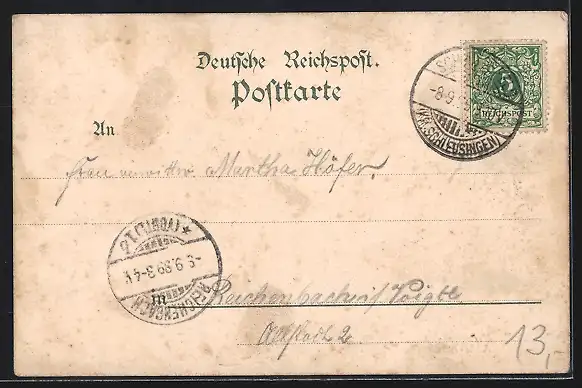 Deutsche Reichspost.
Postkarte
5
REICHSPOST
-8.9.
(KR. SCHLEUSINGEN)
An
Frau verwittw. Martha Höfer,
(VOGTL) 1 2
-9.9.99.3-4N.
REICHENBACH
Reichenbach i/ Voigtl
Altstadt 2
13,-